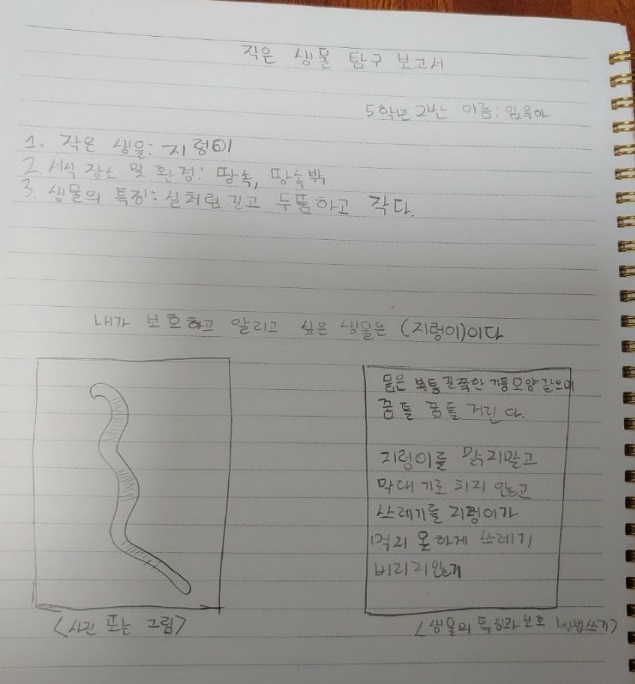 작은 생물 탐구 보고서
5학년 2반 이름: 임육아
1. 작은 생물: 지렁이
2 서식 장소 및 환경: 땅속, 땅속밖
3. 생물의 특징: 실처럼 길고 두뚬하고 작다.
내가 보호하고 알리고 싶은 생물은 (지렁이)이다
몸은 보통 길쭉한 기둥모양같으며
꿈틀 꿈틀 거린다.
지렁이를 밝지말고
막대기로 치지 않고
쓰레기를 지렁이가
먹지 못하게 쓰레기
버리지않기
(사진 또는 그림)
(생물의 특징과 보호 방법쓰기)